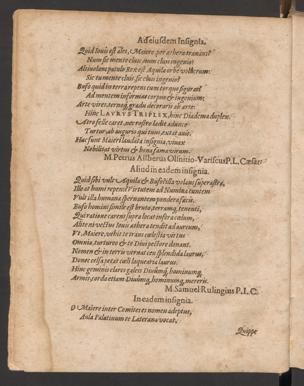 Ad eiusdem Insignia.
Quid Iouis est ales, Maiere, per æthera tranans?
Num sic mente cluis, num cluis ingenio?
Altiuolans patulo Rex est Aquila orbe volucrum:
Sic tu mente cluis, sic cluis ingenio?
Bufo quid in terra repens cum torque figurat?
Ad mentem informas corpus & ingenium;
Arte vires, terno, gradu decoraris ab arte:
Hinc LAVRVS TRIPLEX, hinc Diadema duplex.
Atro felle caret, nec rostro ledit
Turtur, ab augurio qui tuus, exit auis.
Hæc sunt Maieri laudata insignia, viuax
Nobilitat virtus & bona fama virum.
M. Petrus Assherus Olsnitio-Variscus P. L. Cæsar.
Aliud in eadem insignia.
Quid sibi vult Aquila & Bufo? illa volans super astra,
Ille at humi repens? Virtutem ad Numina
Vult illa humana spernantem pondera
Bufo humi similis est bruta, terrena, tenenti,
Qui ratione carens supra locat infera cælum,
Ast eni vectus Iouis æthera tendit ad aureum,
Vt, Maiere, vehit te trans cælestia virtus
Omnia, turturea & te Dius pectore donant.
Nomen & in terris vernat ceu splendida laurus,
Donec celsa petat cæli laquearia laurus.
Hinc geminis clares galeis Diuûmq; hominumq;
Armis, corda etiam Diuûmq; hominumq; mereris.
M. Samuel Rulingius P. L. C.
In eadem insignia.
O Maiere inter Comites es nomen adeptus,
Aula Palatinum te Laterana vocat,
Quippe